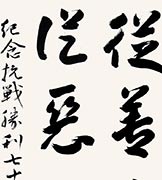 從善
從惡
紀念抗戰勝利七十